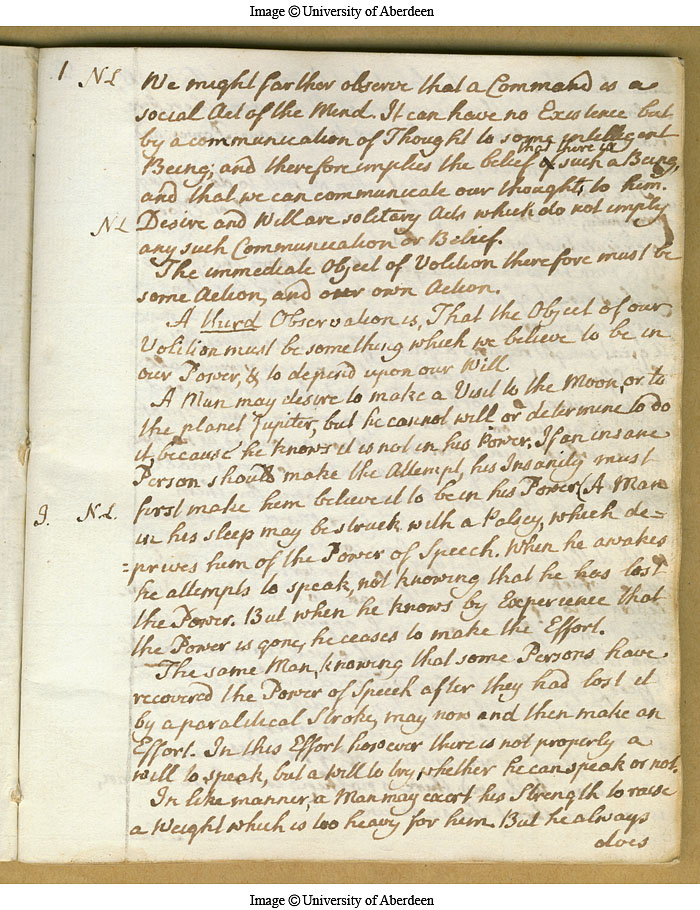 Image © University of Aberdeen
1 NL We might farther observe that a Command is a
social Act of the Mind. It can have no Existence but
by a communication of Thought to some intelligent
that there is
Being; and therefore implies the belief of such a Being,
and that we can communicate our thoughts to him.
NL Desire and Will are solitary Acts which do not imply
any such Communication or Belief.
The immediate Object of Volition therefore must be
some Action, and our own Action.
A third Observation is, That the Object of our
Volition must be something which we believe to be in
our Power, & to depend upon our Will
A Man may desire to make a Visit to the Moon, or to
the planet Jupiter, but he cannot will or determine to do
it, because he knows it is not in his Power. If an insane
Person should make the Attempt, his Insanity must
NL. first make him believe it to be in his Power. (A Man
in his sleep may be struck with a Palsey, which de=
=prives him of the Power of Speech. When he awakes
he attempts to speak, not knowing that he has lost
the Power. But when he knows by Experience that
the Power is gone, he ceases to make the Effort.
The same Man, knowing that some Persons have
recovered the Power of Speech after they had lost it
by a paralitical Stroke, may now and then make an
Effort. In this Effort however there is not properly a
will to speak, but a will to try, whether he can speak or not.
In like manner, a Man may exert his Strength to raise
a Weight which is too heavy for him. But he always
does
Image © University of Aberdeen